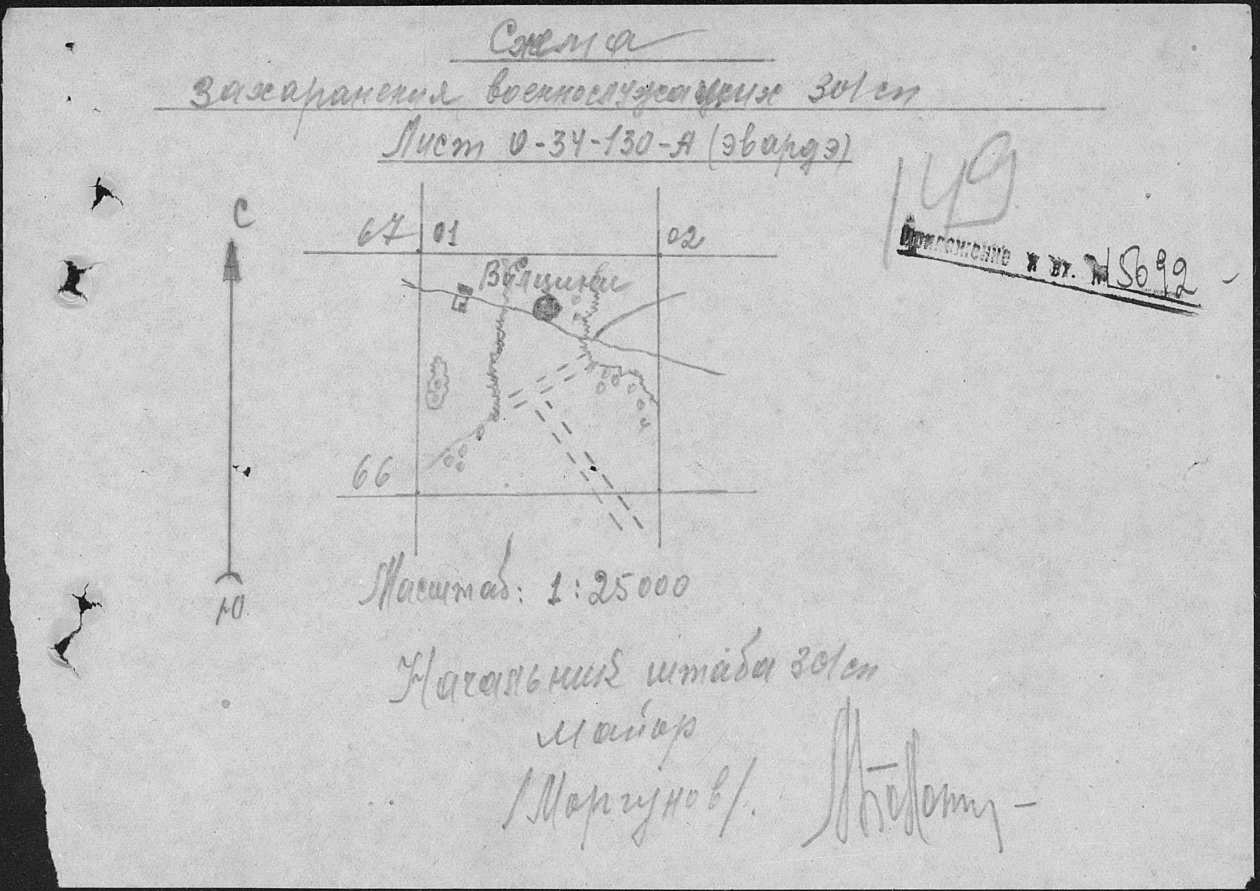 Схема
Захаранения военнослужащих 301сп
Лист О-34-130-А (Эвардэ)
149
С
67 01 02
Приложение к вх. № 15692
66
Ю
Масштаб: 1:25000
Начальник штаба 301сп
майор
/Моргунов/.